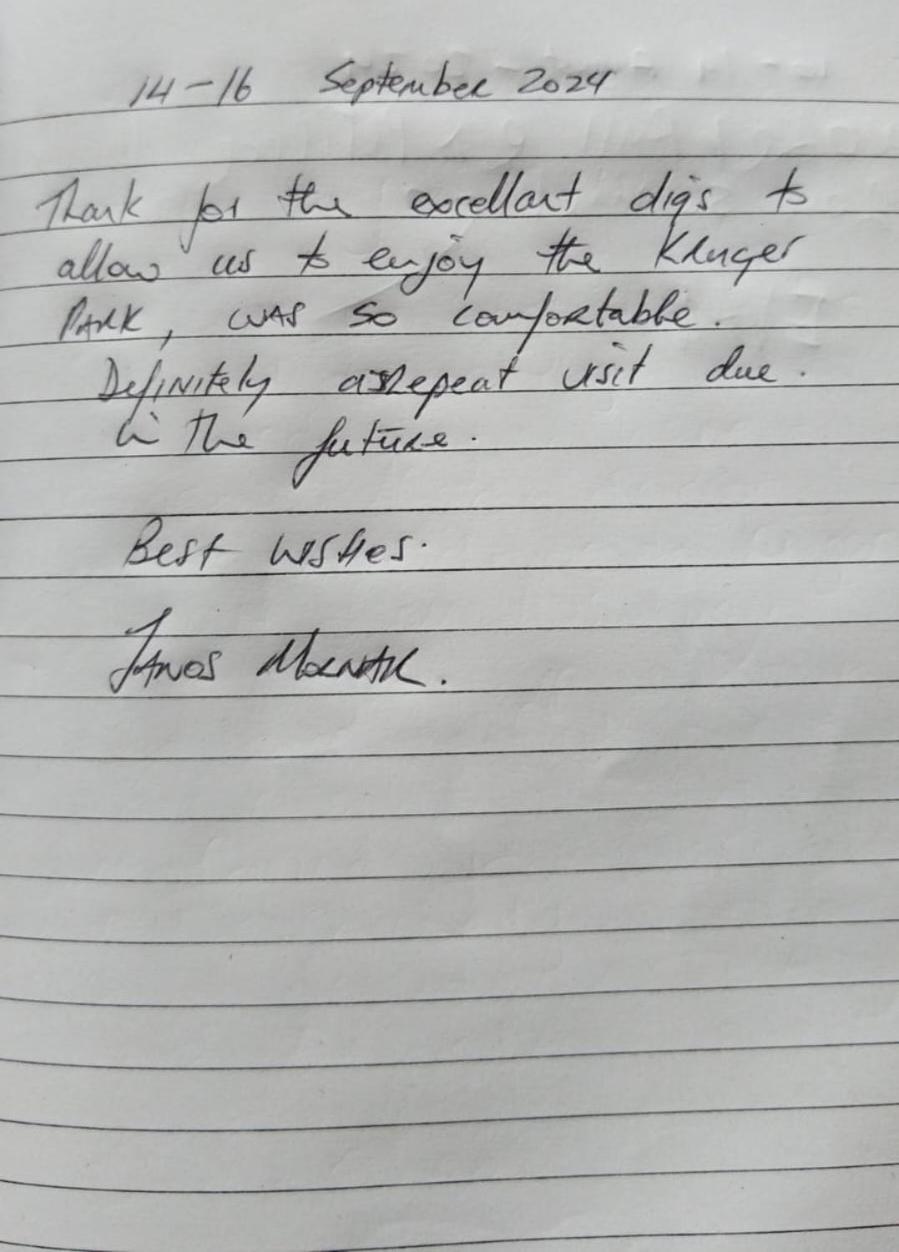 14-16 September 2024
Thank for the excellant digs to
allow us to enjoy the Kruger
PARK, WAS SO comfortable.
Definitely a repeat visit due.
in the future.
Best wishes.
JANOS MOLNAR.